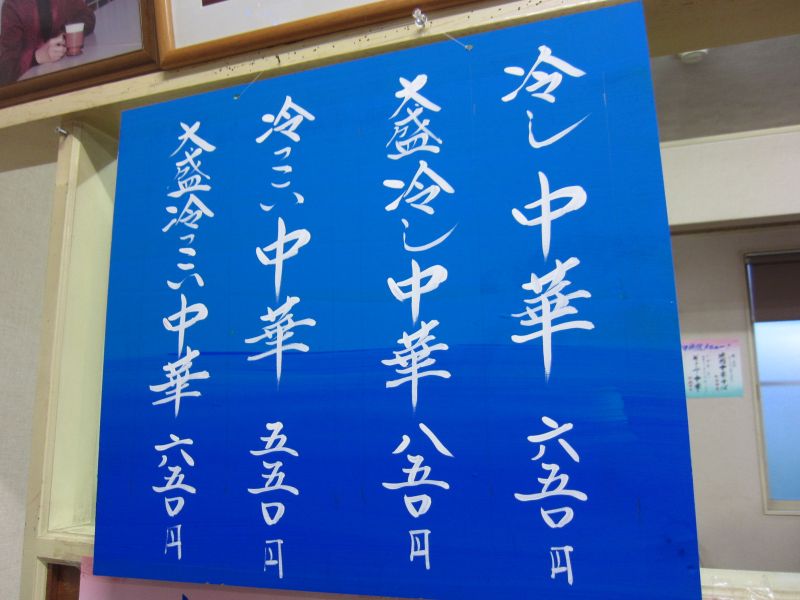 冷し中華 六五〇円
大盛冷し中華 八五〇円
冷っこい中華 五五〇円
大盛冷っこい中華 六五〇円